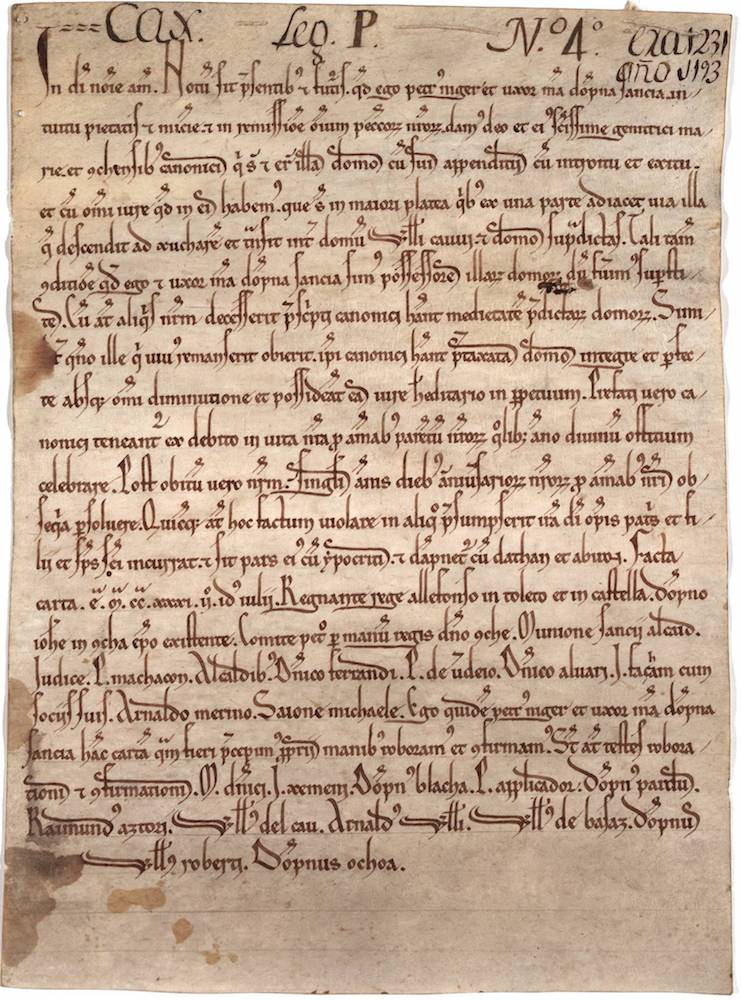 Cax. Leg. P. N.º 4.º era 1231
año 1193
In di noïe am̄. Notū sit p̄sentib' ⁊ futīs. qd̄ ego petr' niger et uxor m̄a dōpna sancia. in
tuitu pietatis ⁊ m̄icīe. ⁊ in remissiōe ōium peccorꝝ nr̄orꝝ. dam' deo et ei' s̄cissime genitrici ma/
rie. et ꝯchensib' canonicī domō cū suī appenditiī cū introitu et exitu.
et cū om̄i iure qd̄ in eī habem'. que s̄ in maiori platea qb' ex una parte adiacet uia illa
q̄ descendit ad xuchare et t̄nsit int̄ domū Will̄i cauui ⁊ domō sup̄dictas. Tali tam̄
ꝯditiōe qd̄ ego ⁊ uxor m̄a dōpna sancia sim' possessorē illarꝝ domorꝝ dū fuim' sup̄sti
te. Cū aū aliq's nr̄m decesserit p̄sc̄pti canonici hānt medietatē p̄dictarꝝ domorꝝ. Simi/
qn̄o ille q̄ uiu' remanserit obierit. ip̄i canonici hānt p̄taxatā domō integre et p̄fec/
te absqꝫ om̄i diminutione et possideāt eā iure h̄editario in pp̄etuum. Prefati uero ca/
nonici teneant' ex debito in uita n̄ra p̄ aīab' parētū nr̄orꝝ qͦlib; āno diuinū offitium
celebrare. Post obitū uero nr̄m. singlī ānis dieb' āniu'sariorꝝ nr̄orꝝ p̄ aīab' nr̄ī ob/
seq̄a p̄soluere. Quicqꝫ aū hoc factum uiolare in aliqͦ p̄sumpserit irā di oīpis pat's et fi/
lii et sp̄s sc̄i incurrat. ⁊ sit pars ei' cū ypocritī. ⁊ dāpnet' cū dathan et abirō. Facta
carta. ē. m̄. c̄c̄. xxxi. ij. id' iulij. Regnante rege allefonso in toleto et in castella. Dōpno
ioh̄e in ꝯcha ep̄o existente. Comite petͦ p̄ manū regis dn̄o ꝯche. Munione sancii alcaid.
Judice. P. machacon. Alcaldib'. Dn̄ico ferrandi. P. de Dn̄ico aluari. J. cum
sociis suis. Arnaldo merino. Saione michaele. Ego quidē petr' niger et uxor m̄a dōpna
sancia hāc cartā q̄m fieri p̄cepim' pp̄riī manib' roboram' et ꝯfirmam'. St̄ aū testes robora/
tionī ⁊ ꝯfirmationī. M. dn̄ici. J. xemeni. Dōpn' blacha. P. applicador. Dōpn'
Raimund' aztori. Will̄' del cau. Arnald' Will̄i. Will̄' de basaz. Dōpnus
Will̄' roberti. Dōpnus ochoa.